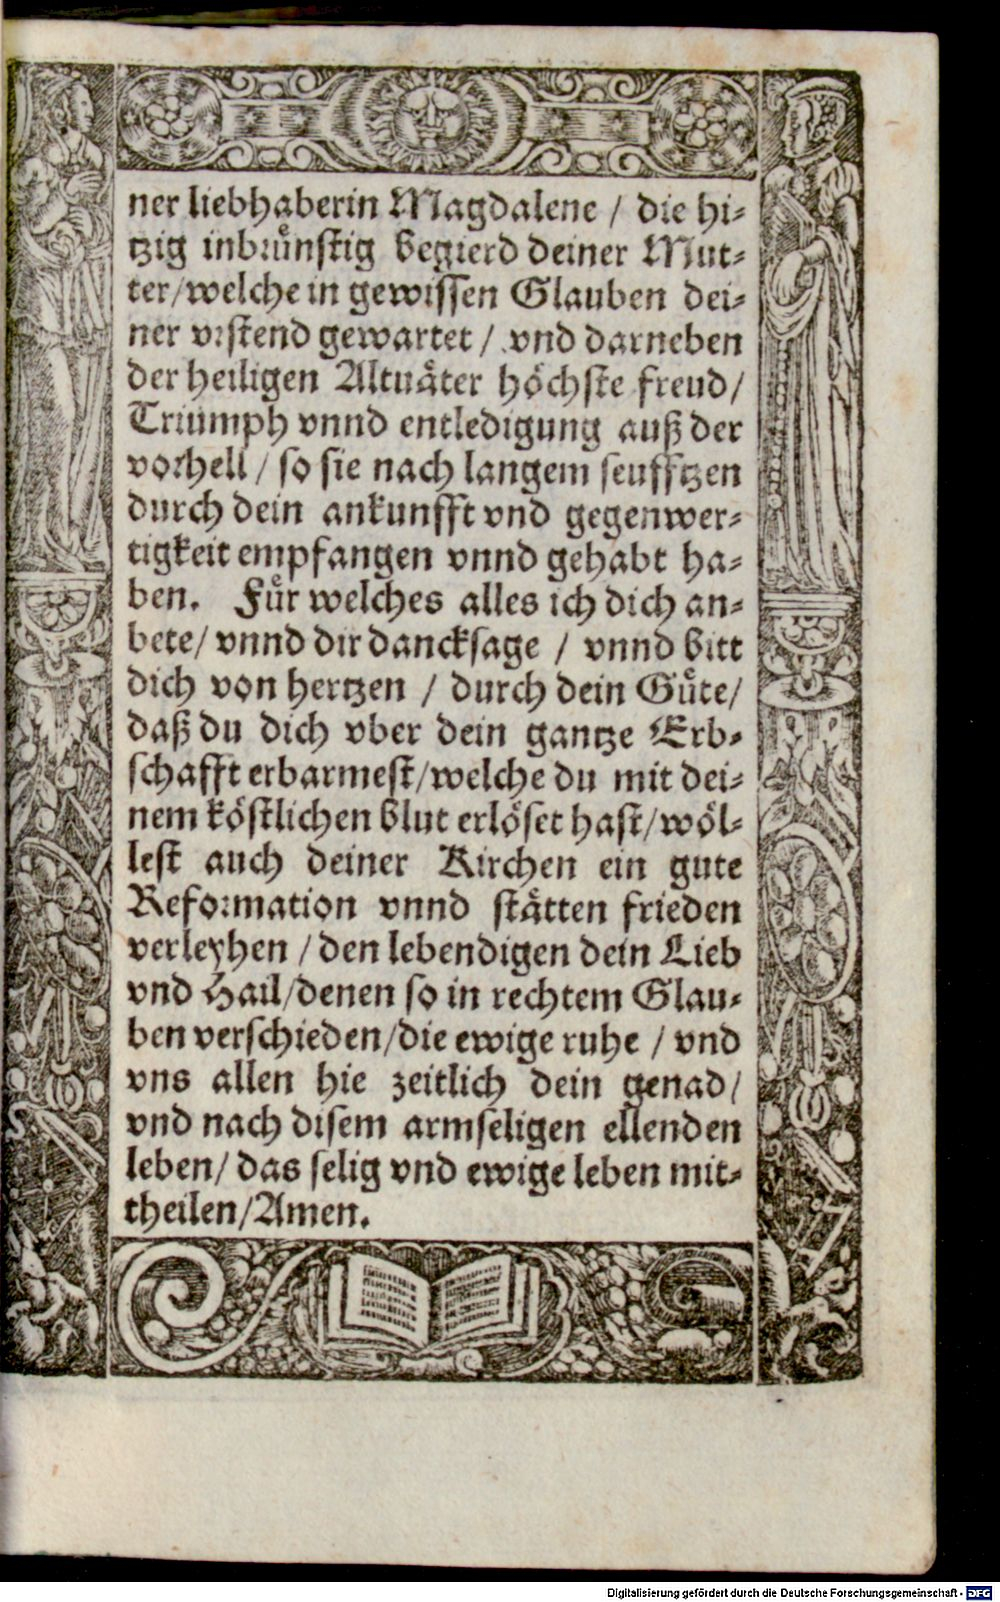 ner liebhaberin Magdalene / die hi⸗
tzig inbruͤnstig begierd deiner Mut⸗
ter/welche in gewissen Glauben dei⸗
ner vrstend gewartet / vnd darneben
der heiligen Altuaͤter hoͤchste freud/
Triumph vnnd entledigung auß der
vorhell / so sie nach langem seufftzen
durch dein ankunfft vnd gegenwer⸗
tigkeit empfangen vnnd gehabt ha⸗
ben. Fuͤr welches alles ich dich an⸗
bete/ vnnd dir dancksage / vnnd bitt
dich von hertzen / durch dein Guͤte/
daß du dich vber dein gantze Erb⸗
schafft erbarmest/welche du mit dei⸗
nem koͤstlichen blut erloͤset hast/woͤl⸗
lest auch deiner Kirchen ein gute
Reformation vnnd staͤtten frieden
verleyhen / den lebendigen dein Lieb
vnd Hail/denen so in rechtem Glau⸗
ben verschieden/die ewige ruhe / vnd
vns allen hie zeitlich dein genad/
vnd nach disem armseligen ellenden
leben/ das selig vnd ewige leben mit⸗
theilen/Amen.
Digitalisierung gefördert durch die Deutsche Forschungsgemeinschaft - DFG